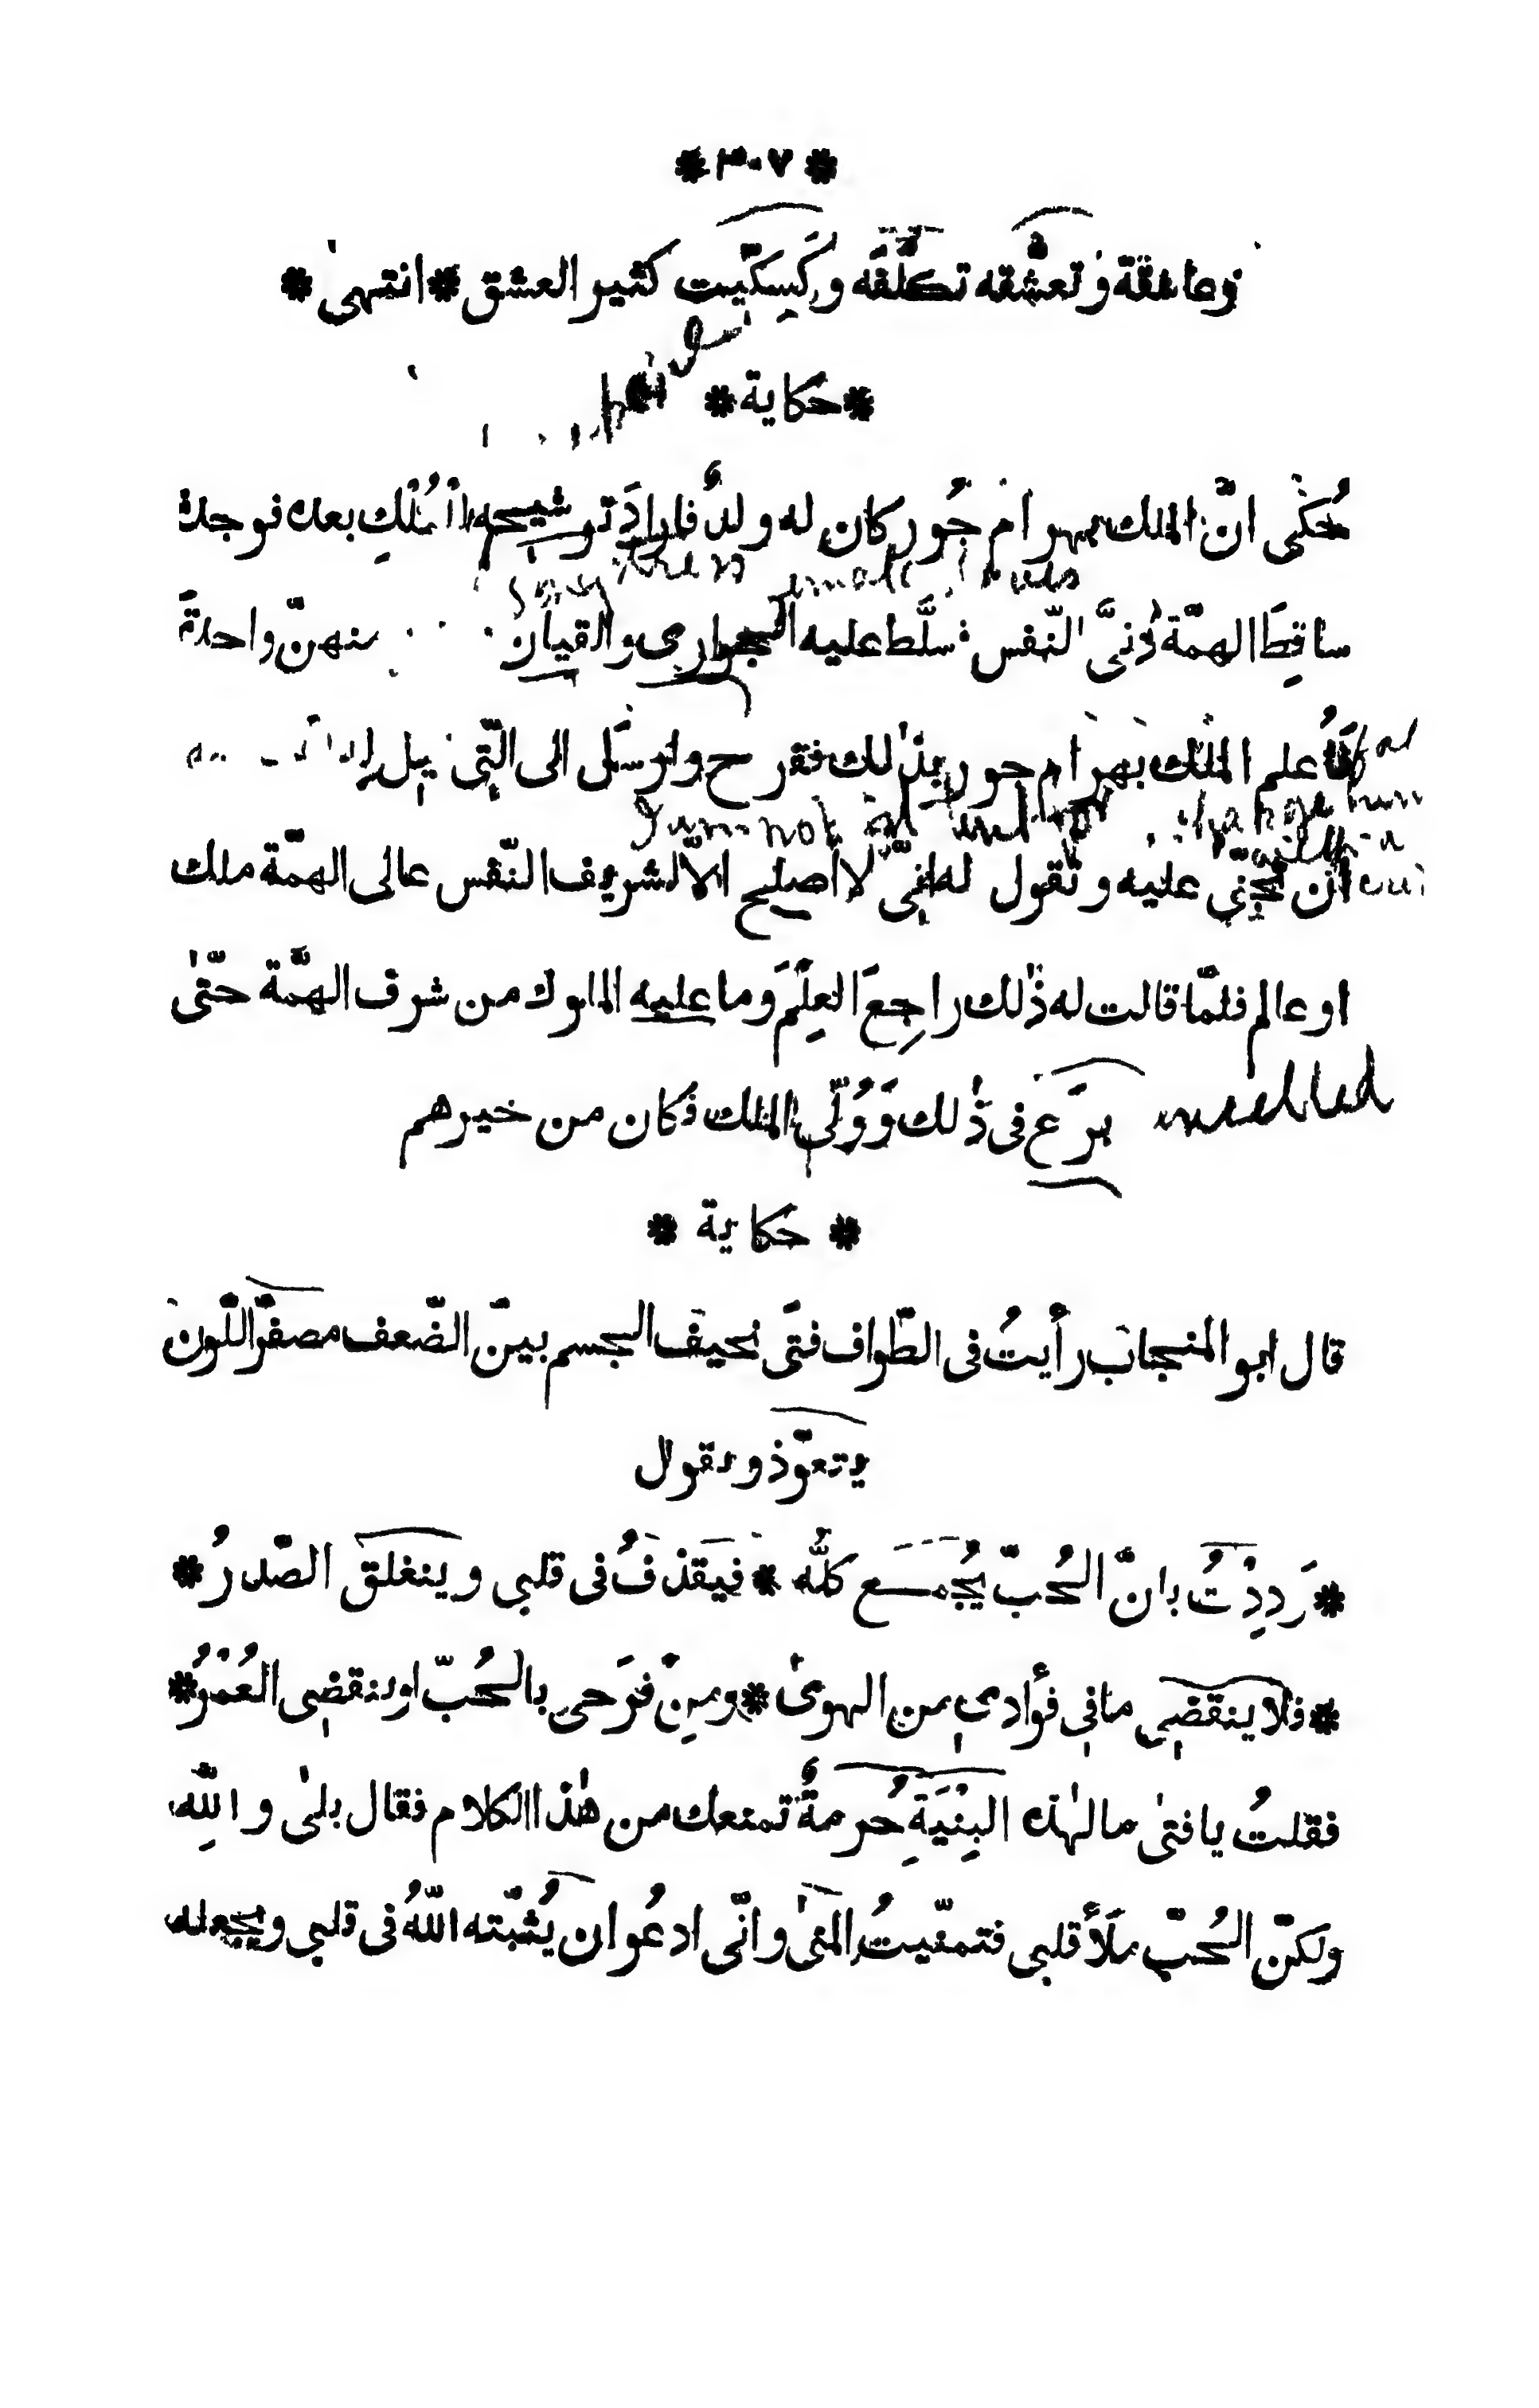 * ٣٠٧ *
وعاشقة وتعشّقه تكلّفه وكسِكّيت كثير العشق * انتهىٰ *
* حكاية *
حُكى انّ الملك بهرام جُور كان له ولدٌ فارادَ توشيحه للمُلكِ بعده فوجدهُ
ساقِطَ الهمّة دَنىَّ النّفس فسلَّط عليه الجوارى والقيان منهنّ واحدةً
فلمّا علم الملك بهرام جور بذٰلك فقرح وارسَل الى الّتى
ان تجنّى عليه وتقول له انّى لا اصلح الّا لشريف النّفس عالى الهمّة ملك
او عالم فلمّا قالت له ذٰلك راجعَ العِلمَ وما عليه الملوك من شرف الهمّة حتّىٰ
برَع فى ذٰلك وَوُلّى الملك فكان من خيرهم
mulled
* حكاية *
قال ابو المنجاب رأيتُ فى الطّواف فتًى نحيف الجسم بيّن الضّعف مصفرّ اللّون
يتعوّذ ويقول
* وَددِتُ بانّ الحُبّ يُجمَع كلّه * فيَقذفُ فى قلبى وينغلق الصّدرُ *
* فلا ينقضى ما فى فؤادى من الهوىٰ * ومِن فرَحى بالحُبّ او ينقضى العُمْرُ *
فقلتُ يا فتىٰ ما لهٰذه البِنْيَةِ حُرمةٌ تمنعك من هٰذا الكلام فقال بلىٰ واللّٰهِ
ولكنّ الحُبّ ملَأ قلبى فتمنّيتُ المنىٰ وانّى ادعُو ان يُثبّته اللّٰهُ فى قلبى ويجعله